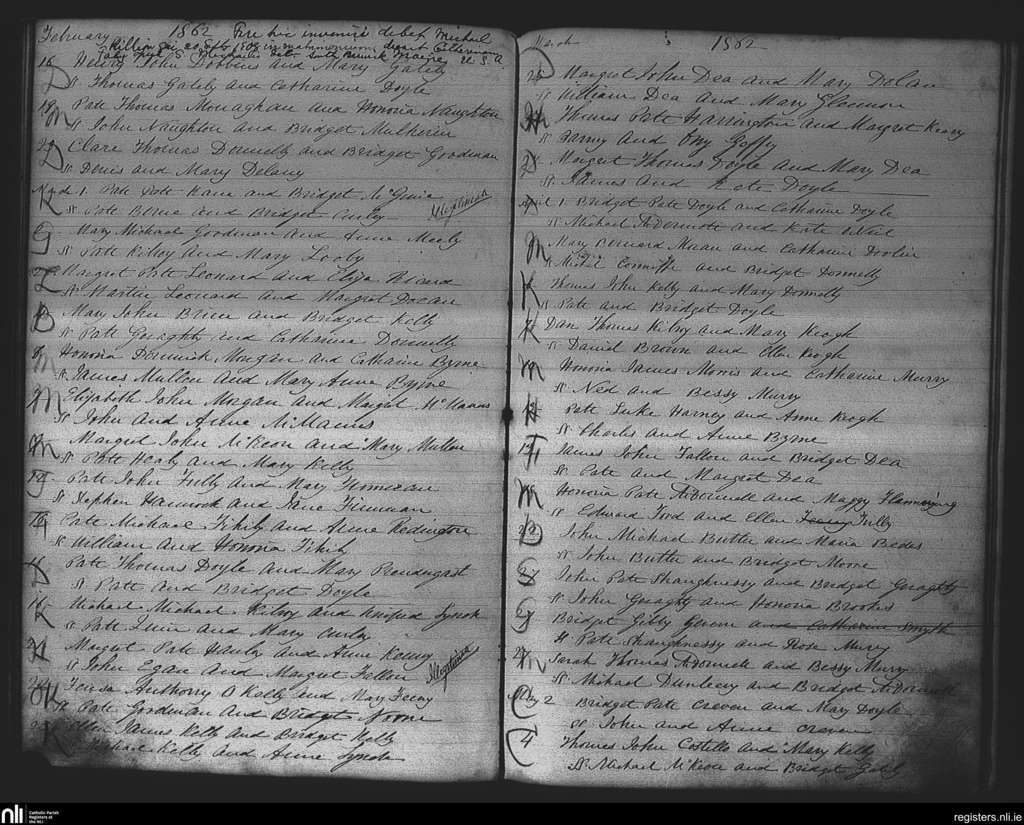 February 1862 Pro hic invenire debet Michael
Killion die 20 Sept 1908 in matrimonium duxit Catherinam
U.S.A
16 Henry John Dobbins and Mary Gately
D Sr Thomas Gately and Catharine Doyle
18 Patt Thomas Monaghan and Honoria Naughton
M Sr John Naughton and Bridget Mulkerin
22 Clare Thomas Donnelly and Bridget Goodman
D Sr Denis and Mary Delany
1. Patt Patt Kane and Bridget McGuire
K Sr Patt Birne and Bridget Curley
Mary Michael Goodman and Anne Meely
G Sr Patt Kilroy and Mary Looby
Margret Patt Leonard and Eliza
L Sr Martin Leonard and Margret Dolan
Mary John Brien and Bridget Kelly
B Sr Patt Geraghty and Catharine Donnelly
Honoria Dominick Morgan and Catharine Byrne
M Sr James Mullon and Mary Anne Byrne
Elizabeth John Morgan and Margret McManus
M Sr John and Anne McManus
Margret John McKeon and Mary Mullon
M Sr Patt Healy and Mary Kelly
Patt John Fully and Mary
F Sr Stephen Hannock and Jane Finneran
Patt Michael Fihily and Anne Kedington
F Sr William and Honoria Fihily
Patt Thomas Doyle and Mary Prendergast
D Sr Patt and Bridget Doyle
16 Michael Michael Kilroy and Unifred Lynch
K Sr Patt Quin and Mary Curley
Margret Patt Hanley and Anne Kenny
H Sr John Egan and Margret Fallon
Teresa Anthony O Kelly and Mary Feeny
OK Sr Patt Goodman and Bridget Noone
Ellen James Kelly and Bridget Kelly
K Michael Kelly and Anne Lynch
March 1862
25 Margret John Dea and Mary Dolan
D Sr William Dea and Mary Gleenon
Thomas Patt Harrington and Margret Keary
H Sr Farrny and Biny Goffy
Margret Thomas Doyle and Mary Dea
D Sr James and Kate Doyle
April 1 Bridget Patt Doyle and Catharine Doyle
D Sr Michael McDermott and Kate
Mary Bernard Maan and Catharine Devlin
M Sr Michl Conniffe and Bridget Donnelly
Thomas John Kelly and Mary Donnelly
K Sr Patt and Bridget Doyle
Dan Thomas Kilroy and Mary Keogh
K Sr Daniel Brown and Ellen Keogh
Honoria James Morris and Catharine Murry
M Sr Ned and Bessy Murry
Patt Luke Harney and Anne Keogh
H Sr Charles and Anne Byrne
James John Fallon and Bridget Dea
F Sr Patt and Margret Dea
Honoria Patt McDonnell and Maggy Flannining
M Sr Edward Ford and Ellen Fully
22 John Michael Buttle and Maria Beades
B Sr John Buttle and Bridget Moore
27 John Patt Shaughnessy and Bridget Geraghty
S Sr John Geraghty and Honoria Brookes
Bridget Gilby Gavern and Catharine Smyth
G Sr Patt Shaughnessy and Rose Murry
Sarah Thomas McDonnell and Bessy Murry
M Sr Michael Dunleevy and Bridget McDonnell
May 2 Bridget Patt Creven and Mary Doyle
C Sr John and Anne Craven
4 Thomas John Costillo and Mary Kelly
C Sr Michael McKeon and Bridget Gately
nli
Catholic Parish
Registers at
the NLI
registers.nli.ie